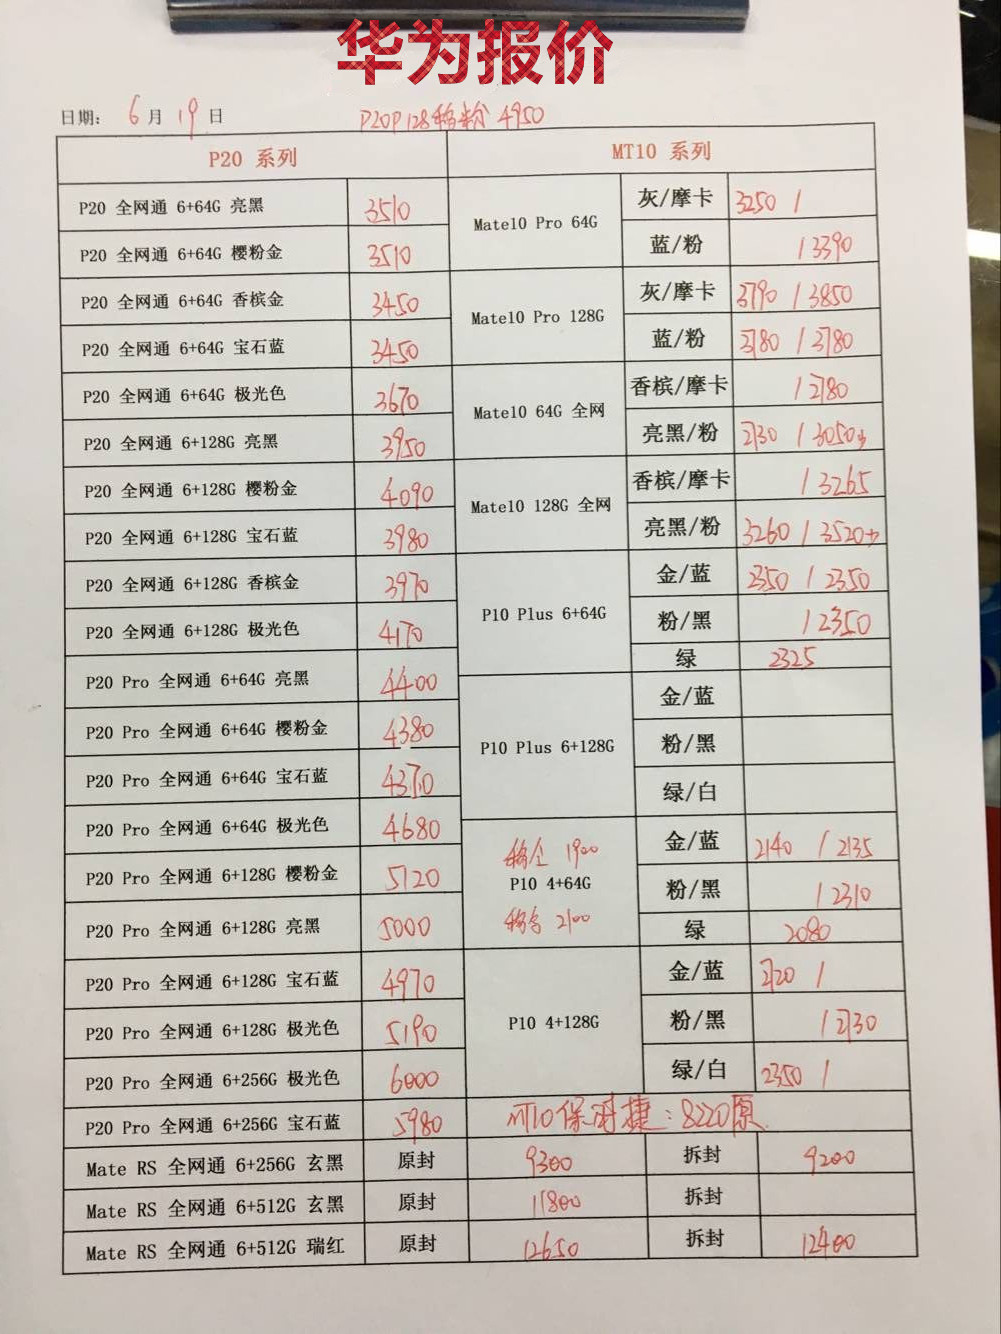 华为报价
日期: 6月19日 P20P128移粉 4950
P20 系列 MT10 系列
P20 全网通 6+64G 亮黑 3510
P20 全网通 6+64G 樱粉金 3510
P20 全网通 6+64G 香槟金 3450
P20 全网通 6+64G 宝石蓝 3450
P20 全网通 6+64G 极光色 3670
P20 全网通 6+128G 亮黑 3950
P20 全网通 6+128G 樱粉金 4090
P20 全网通 6+128G 宝石蓝 3980
P20 全网通 6+128G 香槟金 3970
P20 全网通 6+128G 极光色 4170
P20 Pro 全网通 6+64G 亮黑 4400
P20 Pro 全网通 6+64G 樱粉金 4380
P20 Pro 全网通 6+64G 宝石蓝 4370
P20 Pro 全网通 6+64G 极光色 4680
P20 Pro 全网通 6+128G 樱粉金 5120
P20 Pro 全网通 6+128G 亮黑 5000
P20 Pro 全网通 6+128G 宝石蓝 4970
P20 Pro 全网通 6+128G 极光色 5190
P20 Pro 全网通 6+256G 极光色 6000
P20 Pro 全网通 6+256G 宝石蓝 5980
Mate10 Pro 64G 灰/摩卡 3250 /
蓝/粉 / 3390
Mate10 Pro 128G 灰/摩卡 3790 / 3850
蓝/粉 3780 / 3780
Mate10 64G 全网 香槟/摩卡 / 2780
亮黑/粉 2730 / 3050
Mate10 128G 全网 香槟/摩卡 / 3265
亮黑/粉 3260 / 3520
P10 Plus 6+64G 金/蓝 2350 / 2350
粉/黑 / 2350
绿 2325
P10 Plus 6+128G 金/蓝
粉/黑
绿/白
移金 1900
P10 4+64G 金/蓝 2140 / 2135
粉/黑 / 2310
移 2100
绿 2080
P10 4+128G 金/蓝 2720 /
粉/黑 / 2730
绿/白 2350 /
MT10保时捷:8220原
Mate RS 全网通 6+256G 玄黑 原封 9300 拆封 9200
Mate RS 全网通 6+512G 玄黑 原封 11800 拆封
Mate RS 全网通 6+512G 瑞红 原封 12650 拆封 12400